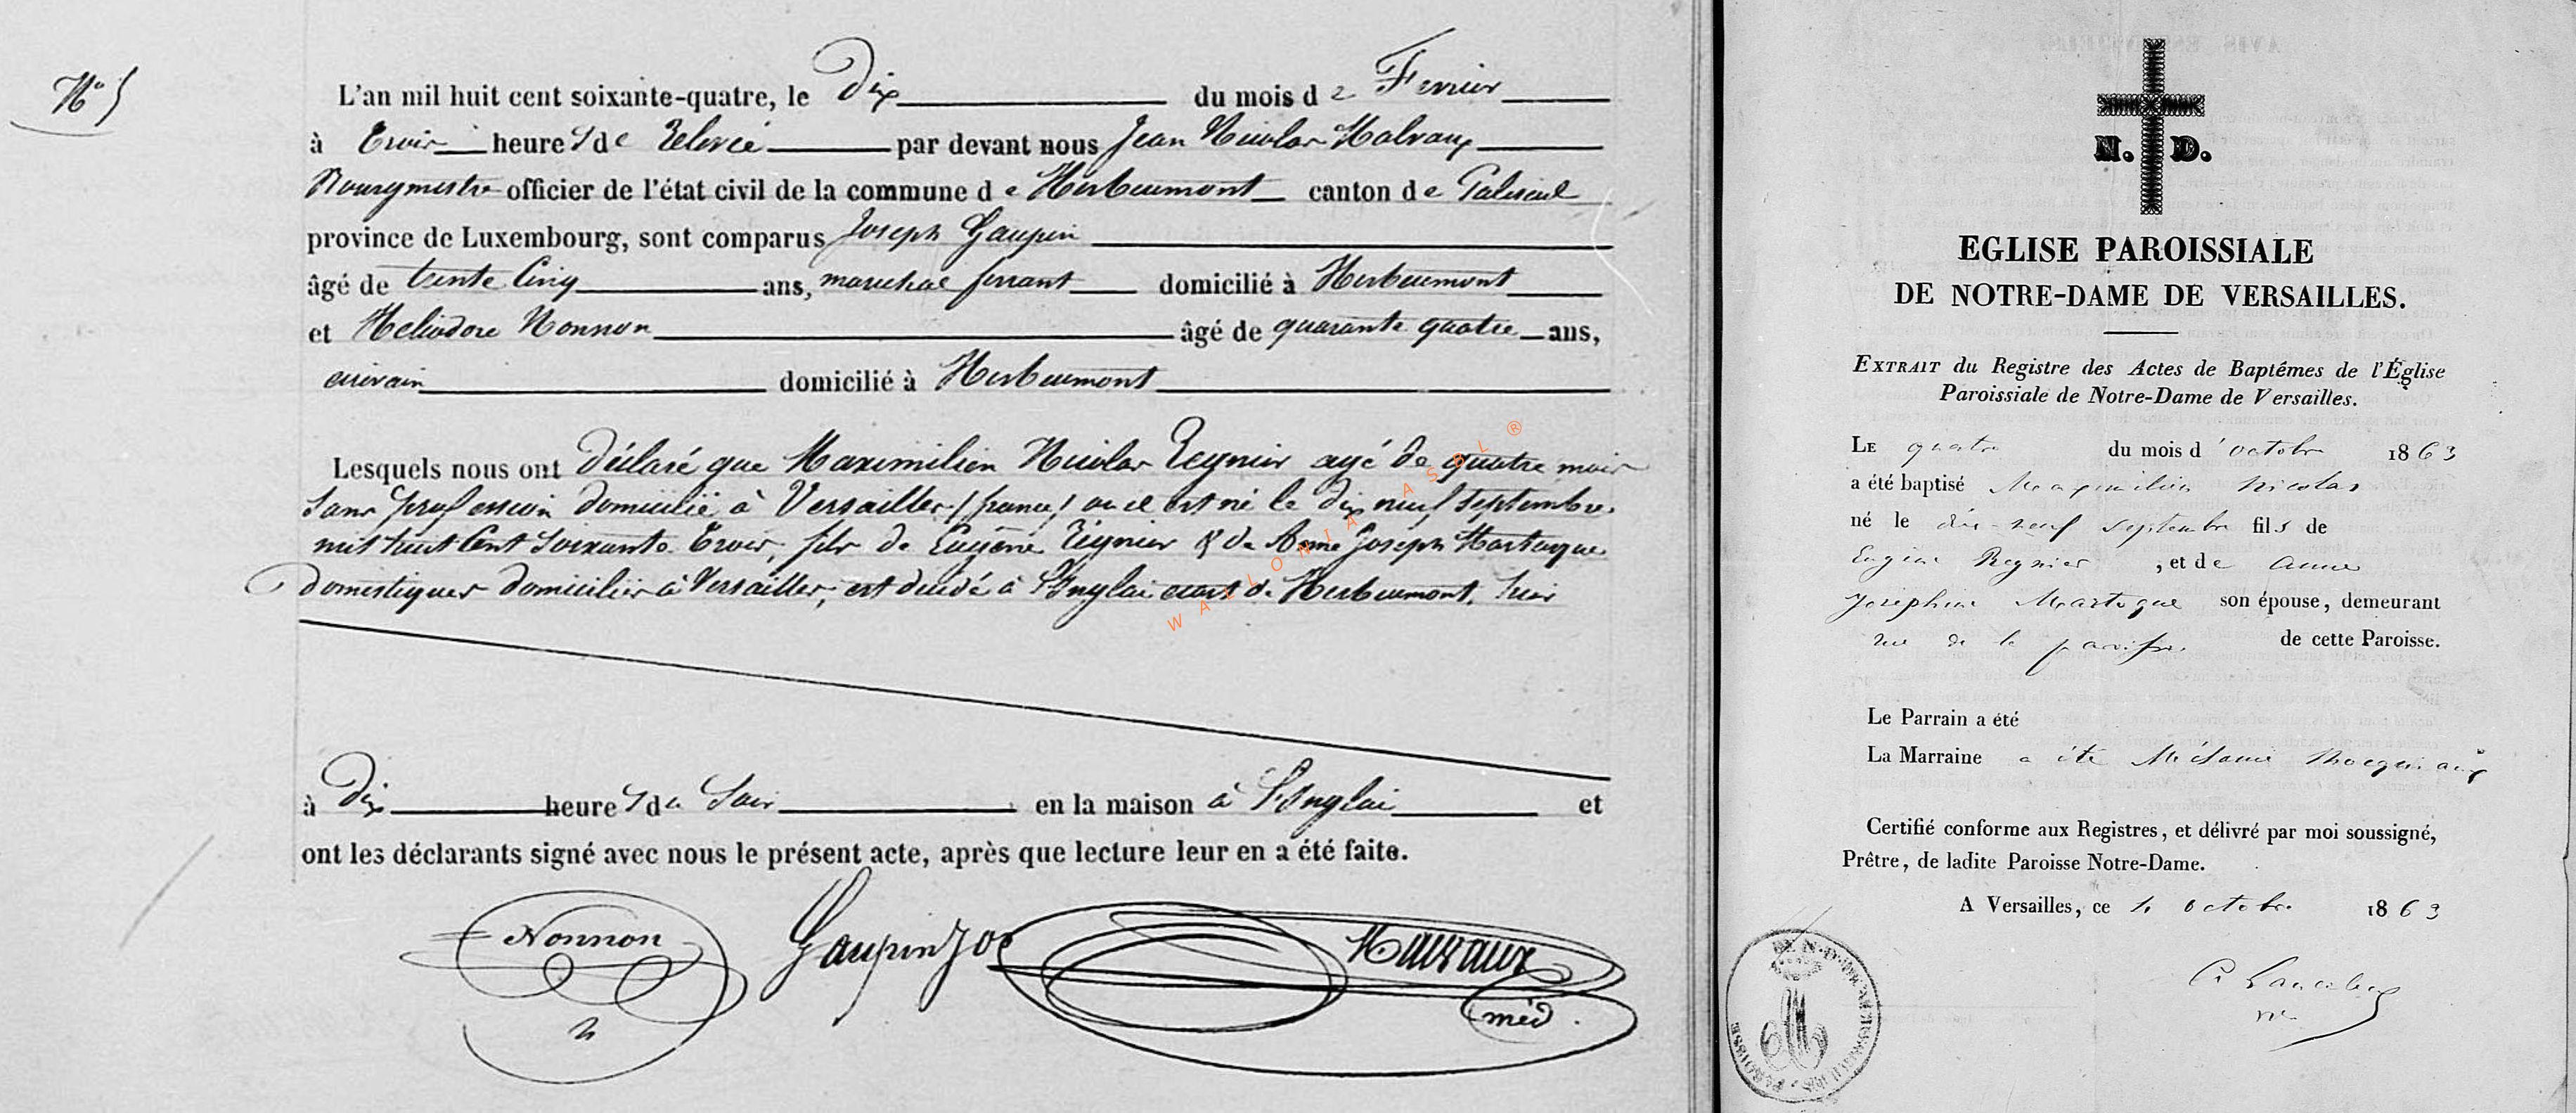 N° 5
L'an mil huit cent soixante-quatre, le Dix du mois de Fevrier
à Trois heures de Relevée par devant nous Jean Nicolas Malvaux
Bourgmestre officier de l'état civil de la commune de Herbeumont canton de Paliseul
province de Luxembourg, sont comparus Joseph Gaupin
âgé de trente Cinq ans, marechal ferrant domicilié à Herbeumont
et Heliodore Nonnon âgé de quarante quatre ans,
écrivain domicilié à Herbeumont
Lesquels nous ont déclaré que Maximilien Nicolas Reynier agé de quatre mois
sans profession domicilié à Versailles (france) ou il est né le dix neuf septembre
mil huit Cent soixante Trois, fils de Eugène Reynier & de Anne Joseph Martacque
domestiques domiciliés à Versailles, est décédé à L'Inglai écart de Herbeumont, hier
à Dix heures du Soir en la maison à L'Inglai et
ont les déclarants signé avec nous le présent acte, après que lecture leur en a été faite.
Nonnon Gaupin Jos Malvaux
méd.
WALLONIA ASBL ®
N. D.
EGLISE PAROISSIALE
DE NOTRE-DAME DE VERSAILLES.
EXTRAIT du Registre des Actes de Baptêmes de l'Église
Paroissiale de Notre-Dame de Versailles.
LE quatre du mois d'octobre 1863
a été baptisé Maximilien Nicolas
né le dix-neuf septembre fils de
Eugène Regnier, et de Anne
Joséphine Martoque son épouse, demeurant
rue de la paroisse de cette Paroisse.
Le Parrain a été
La Marraine a été Mélanie
Certifié conforme aux Registres, et délivré par moi soussigné,
Prêtre, de ladite Paroisse Notre-Dame.
A Versailles, ce 4 octobre 1863